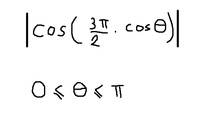 |cos(3π/2 · cosθ)|
0 ⩽ θ ⩽ π